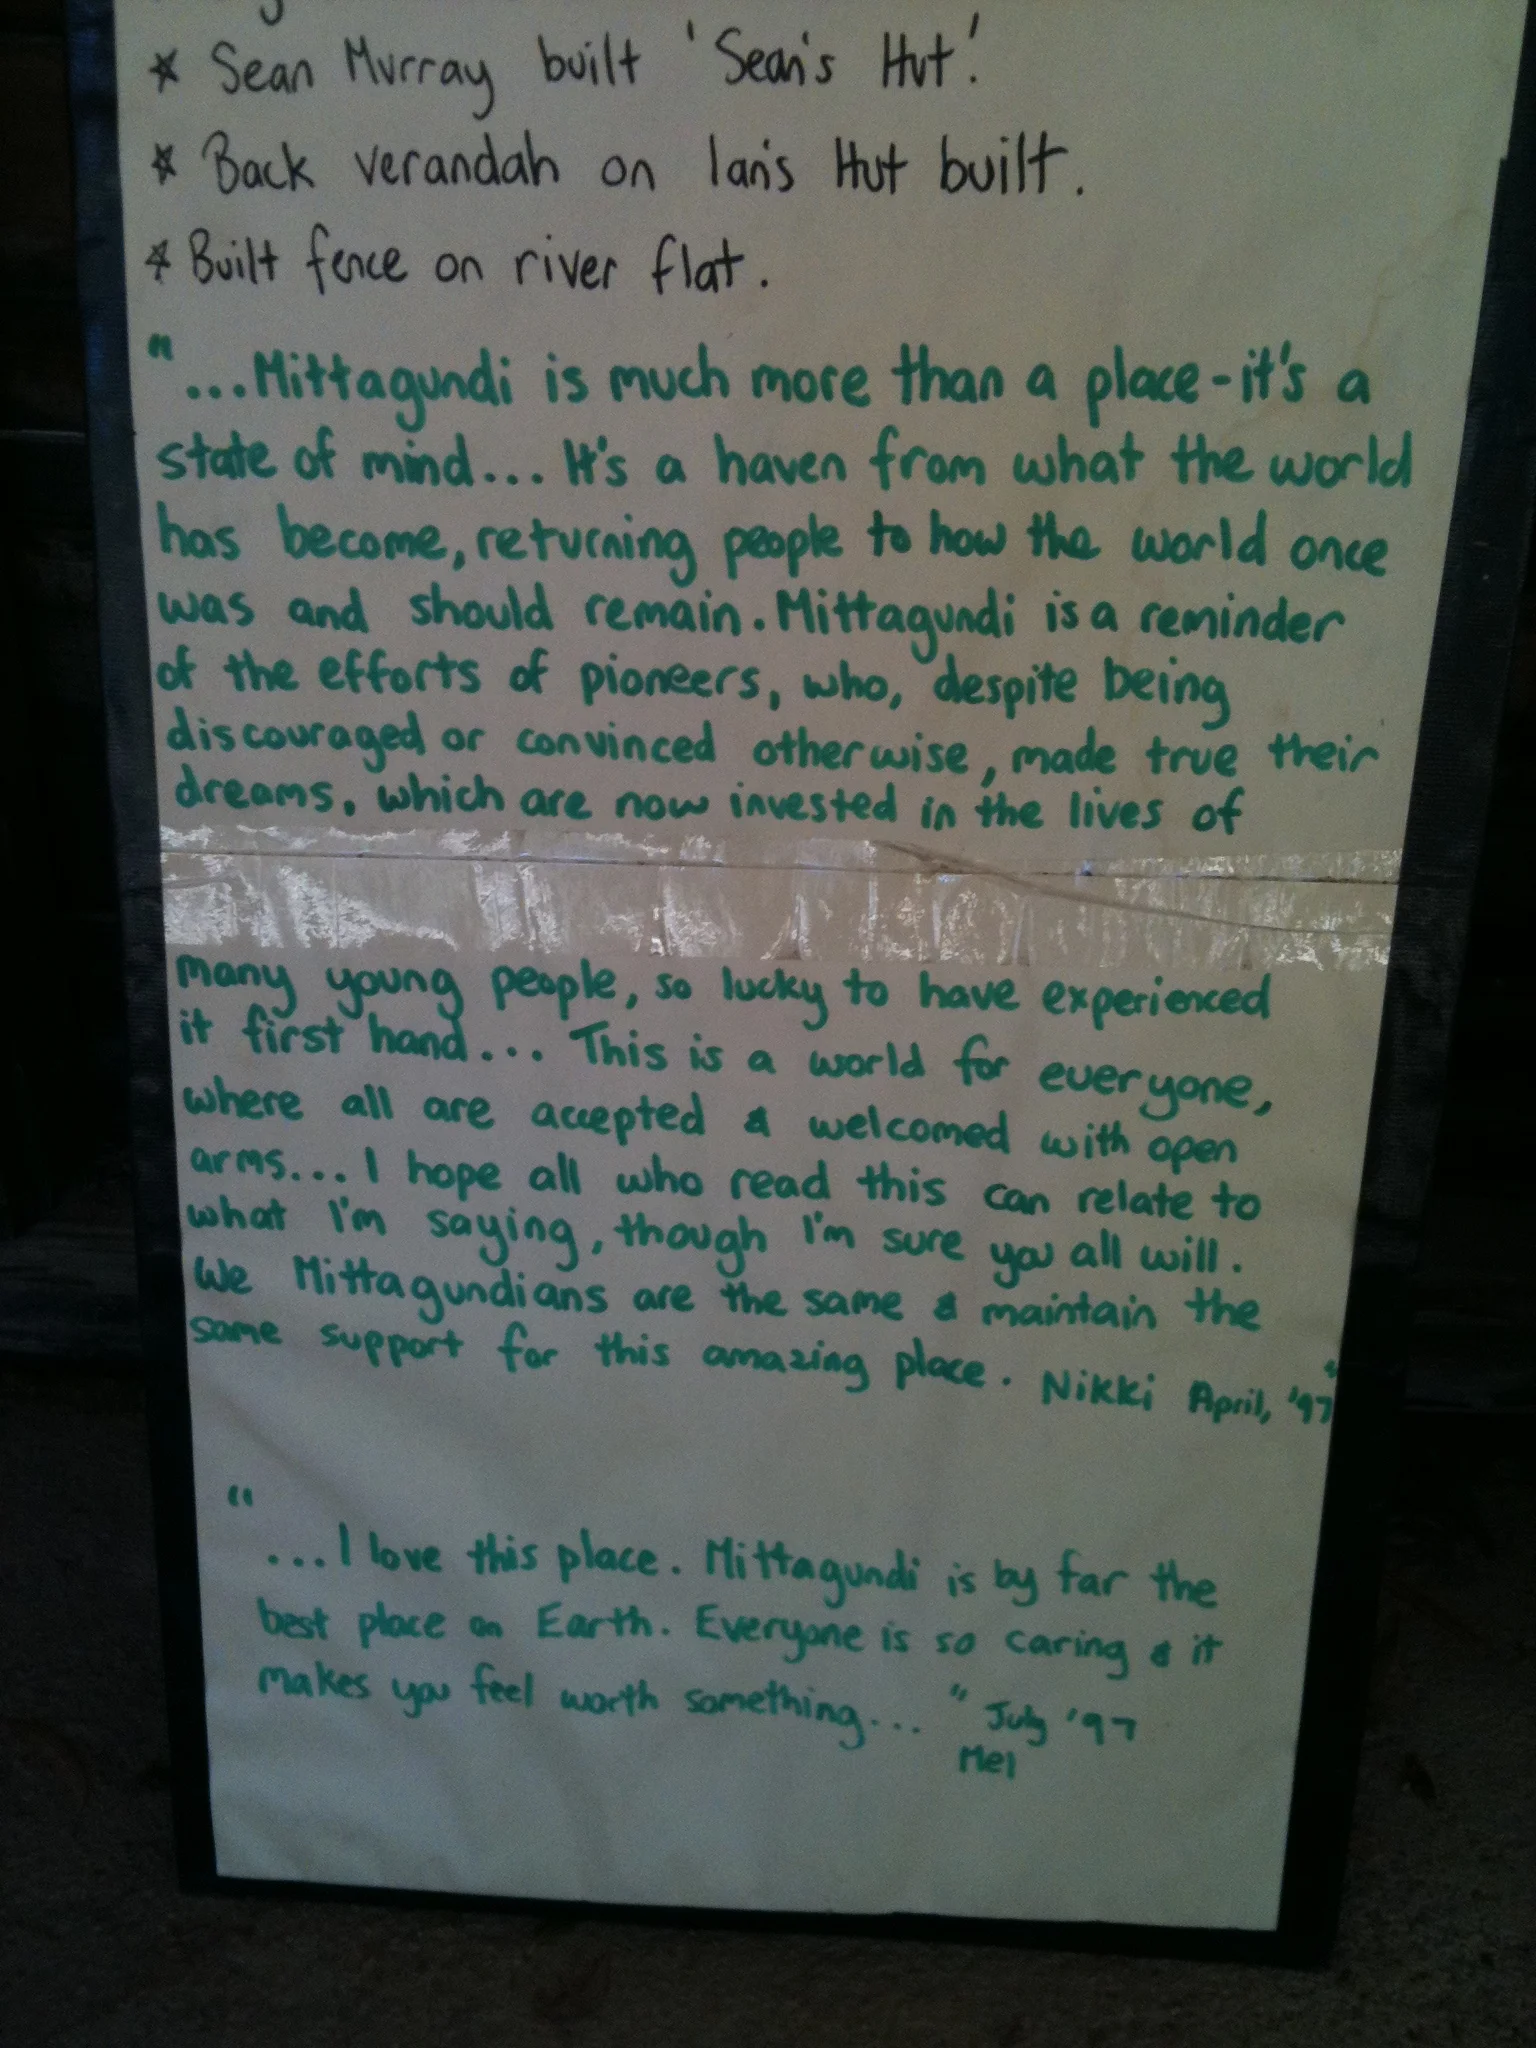 * Sean Murray built 'Sean's Hut'.
* Back verandah on Ian's Hut built.
* Built fence on river flat.
"...Mittagundi is much more than a place - it's a
state of mind... It's a haven from what the world
has become, returning people to how the world once
was and should remain. Mittagundi is a reminder
of the efforts of pioneers, who, despite being
discouraged or convinced otherwise, made true their
dreams, which are now invested in the lives of
many young people, so lucky to have experienced
it first hand... This is a world for everyone,
where all are accepted & welcomed with open
arms... I hope all who read this can relate to
what I'm saying, though I'm sure you all will.
We Mittagundians are the same & maintain the
same support for this amazing place. Nikki April, '97"
"...I love this place. Mittagundi is by far the
best place on Earth. Everyone is so caring & it
makes you feel worth something... " July '97
Mel